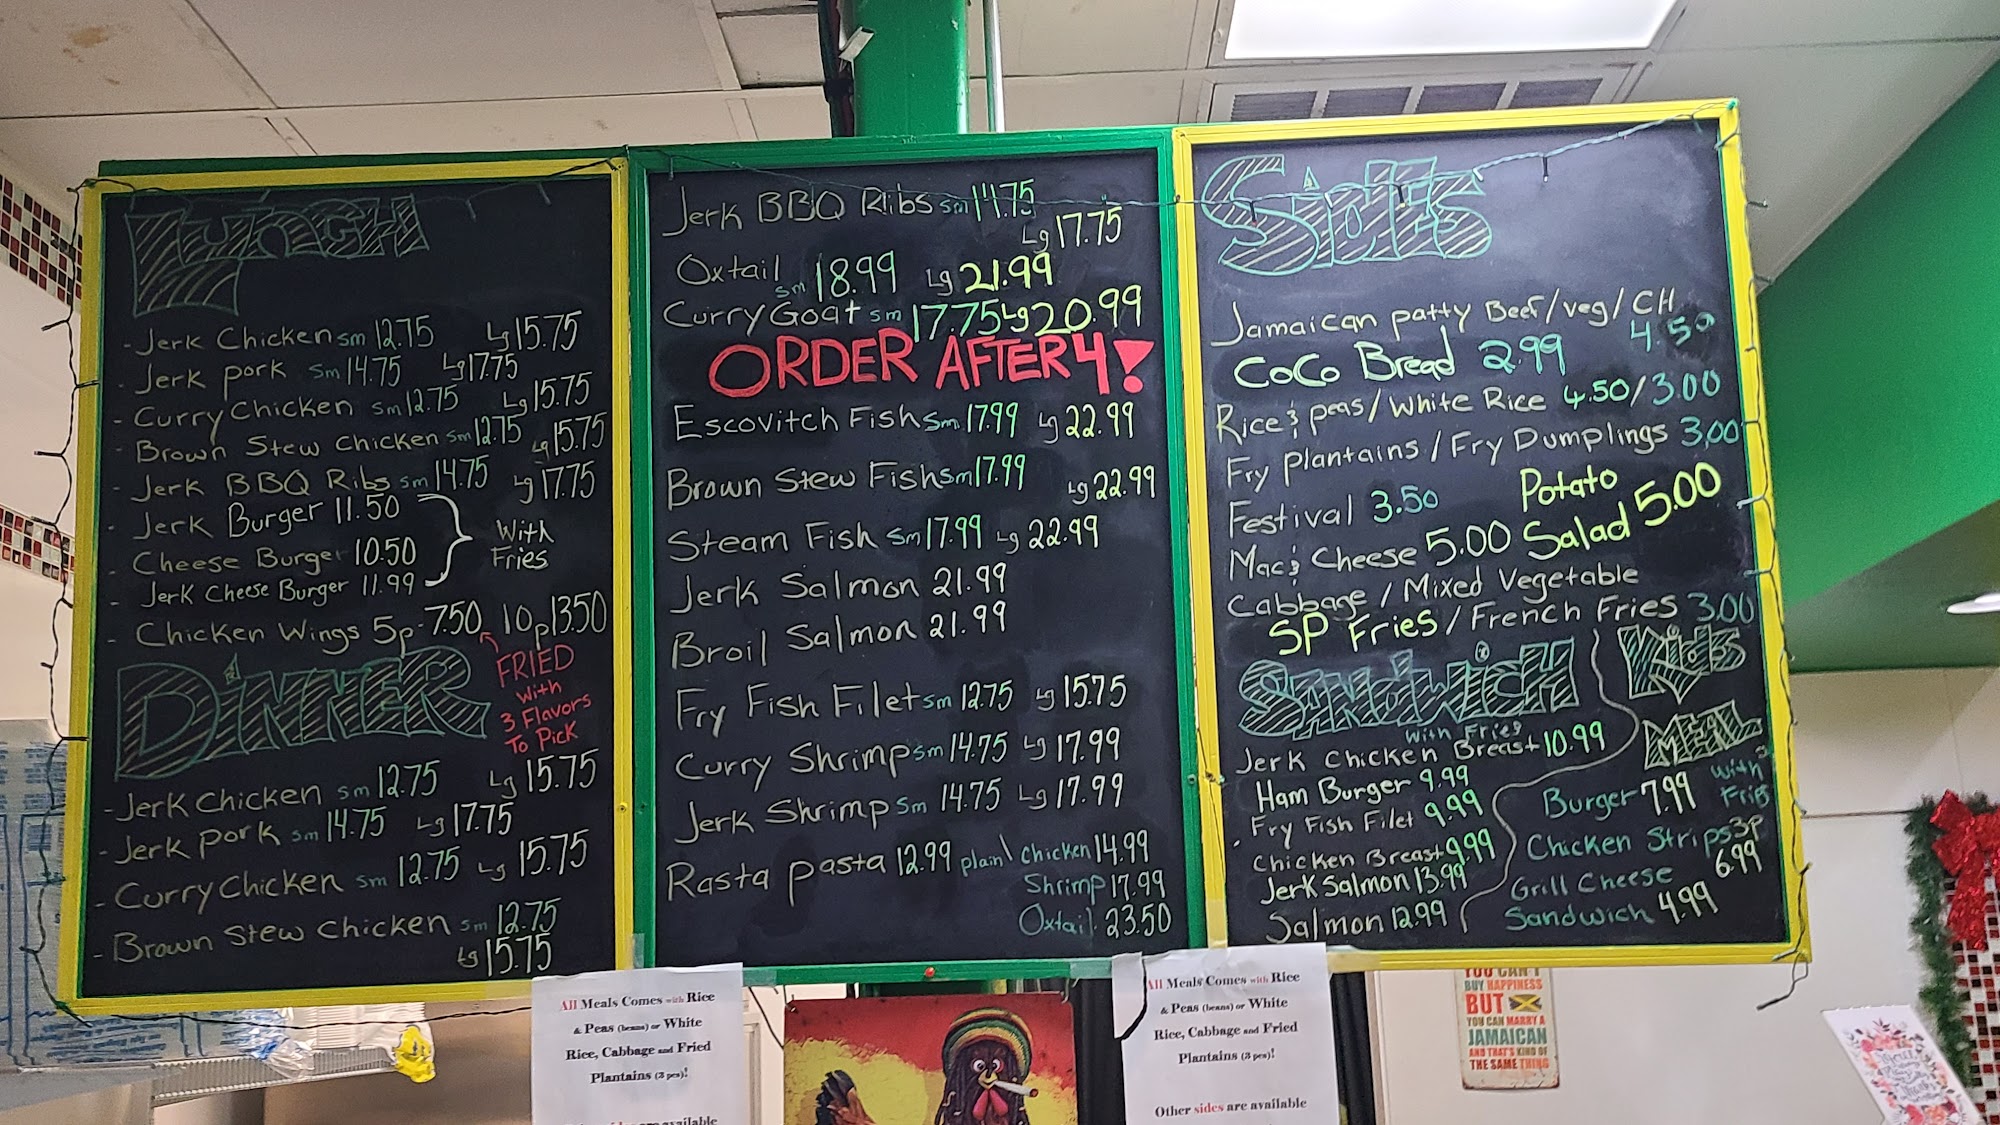 LUNCH
- Jerk Chicken sm 12.75 Lg 15.75
- Jerk pork sm 14.75 Lg 17.75
- Curry Chicken sm 12.75 Lg 15.75
- Brown Stew Chicken sm 12.75 Lg 15.75
- Jerk BBQ Ribs sm 14.75 Lg 17.75
- Jerk Burger 11.50
- Cheese Burger 10.50
- Jerk Cheese Burger 11.99
With
Fries
- Chicken Wings 5p-7.50 10p 13.50
FRIED
With
3 Flavors
To Pick
DINNER
- Jerk Chicken sm 12.75 Lg 15.75
- Jerk pork sm 14.75 Lg 17.75
- Curry Chicken sm 12.75 Lg 15.75
- Brown Stew Chicken sm 12.75
Lg 15.75
Jerk BBQ Ribs sm 14.75
Lg 17.75
Oxtail sm 18.99 Lg 21.99
Curry Goat sm 17.75 Lg 20.99
ORDER AFTER 4!
Escovitch Fish sm. 17.99 Lg 22.99
Brown Stew Fish sm 17.99 Lg 22.99
Steam Fish sm 17.99 Lg 22.99
Jerk Salmon 21.99
Broil Salmon 21.99
Fry Fish Filet sm 12.75 Lg 15.75
Curry Shrimp sm 14.75 Lg 17.99
Jerk Shrimp sm 14.75 Lg 17.99
Rasta pasta 12.99 plain\ Chicken 14.99
Shrimp 17.99
Oxtail. 23.50
Sides
Jamaican patty Beef/veg/CH
4.50
CoCo Bread 2.99
Rice & peas/White Rice 4.50/3.00
Fry Plantains/Fry Dumplings 3,00
Festival 3.50
Potato
Salad 5.00
Mac & Cheese 5.00
Cabbage/Mixed Vegetable
SP Fries/French Fries 3.00
SANDWICH
With Fries
Jerk Chicken Breast 10.99
Ham Burger 9.99
Fry Fish Filet 9.99
Chicken Breast 9.99
Jerk Salmon 13.99
Salmon 12.99
Kids
MEAL
With
Fries
Burger 7.99
Chicken Strips 3p
6.99
Grill Cheese
Sandwich 4.99
All Meals Comes with Rice
& Peas (beans) or White
Rice, Cabbage and Fried
Plantains (3 pcs)!
sides are available
All Meals Comes with Rice
& Peas (beans) or White
Rice, Cabbage and Fried
Plantains (3 pcs)!
Other sides are available
YOU CAN'T
BUY HAPPINESS
BUT
YOU CAN MARRY A
JAMAICAN
AND THAT'S KIND OF
THE SAME THING